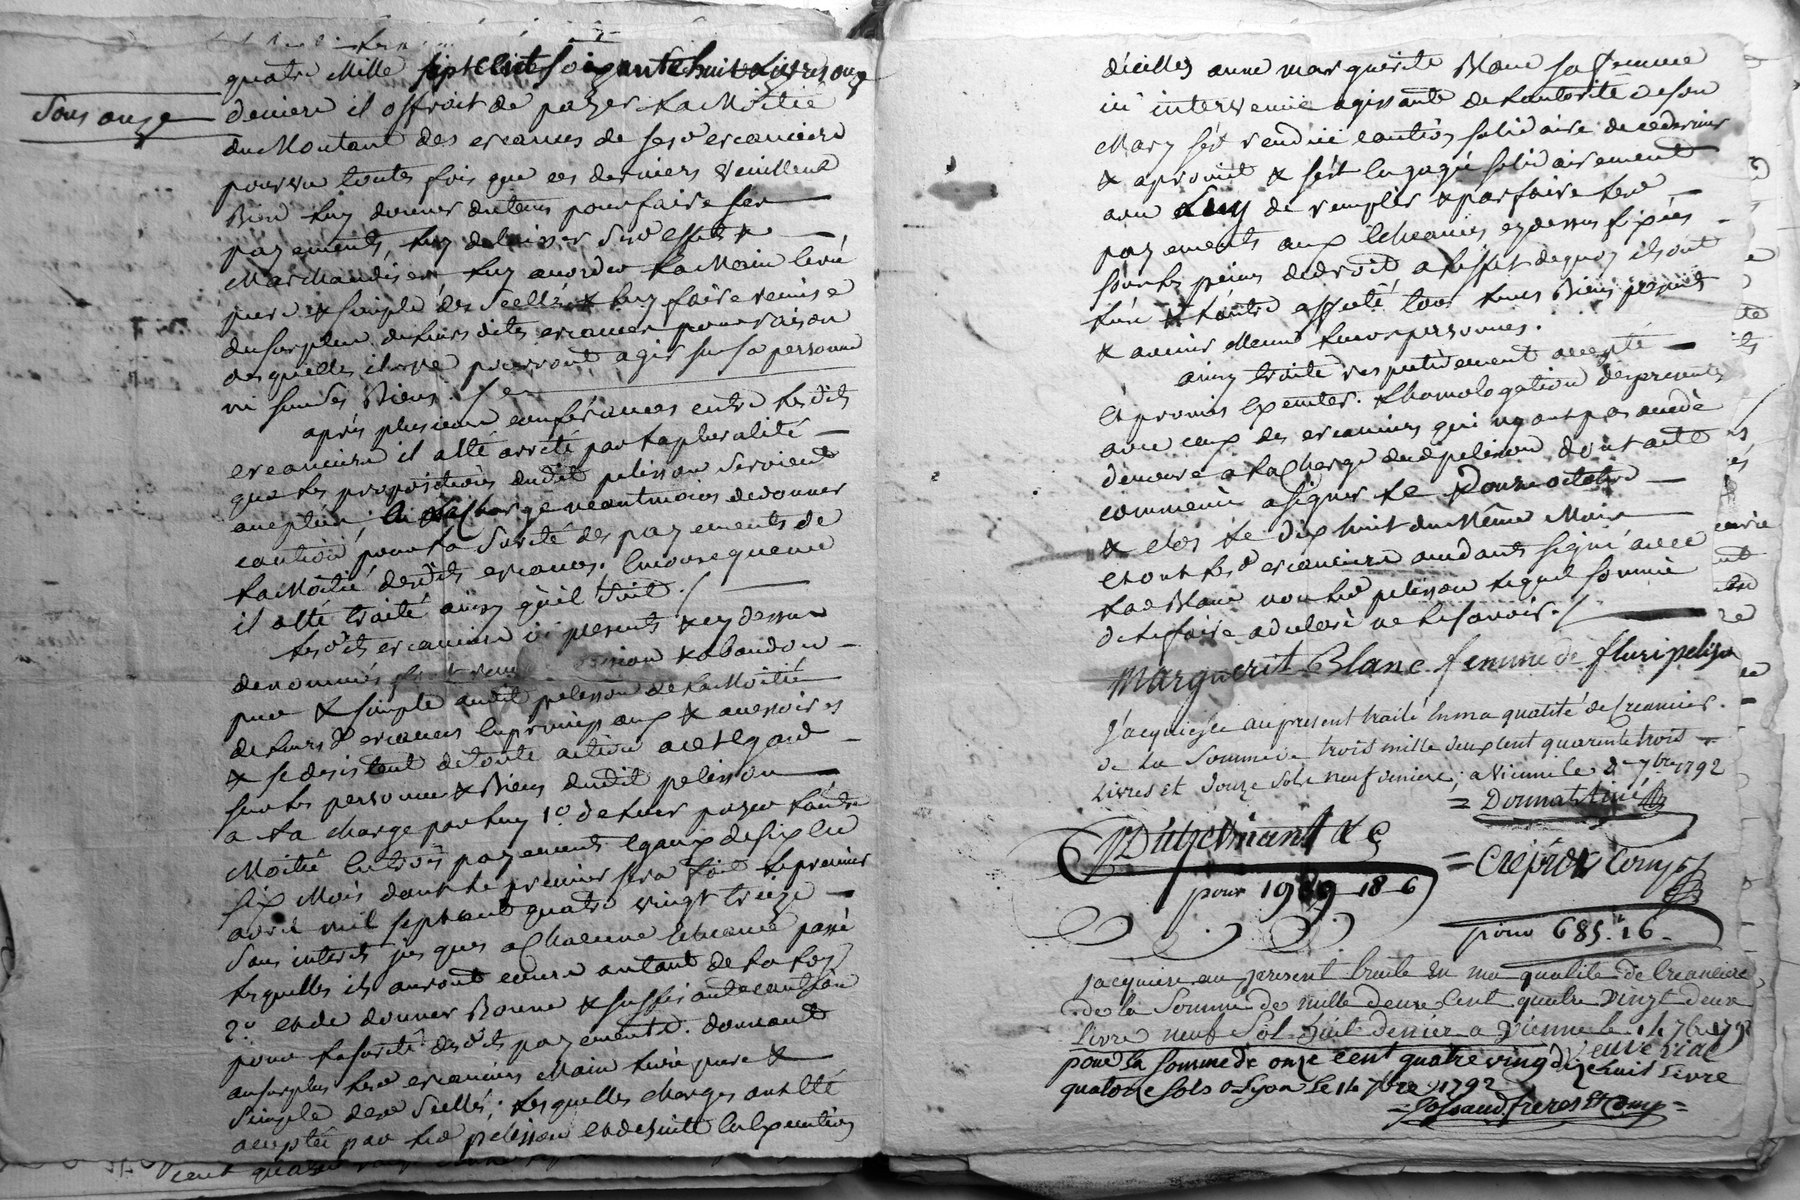 quatre Mille sept cent soixante huit Livres onze
sous onze
deniers il offroit de payer la Moitié
du Montant des creances de ses d creanciers
pourvu toutes fois que ces derniers veuillent
Bien luy donner du tems pour faire ses
payements, luy delaisser ses d effets &
Marchandises luy accorder la Main levée
pure & simple des Scellés & luy faire remise
du surplus de leurs dites creances pour raison
desquelles ils ne pourront agir sur sa personne
ni sur ses Biens. /
après plusieurs conferences entre lesdits
creanciers il a été arreté par la pluralité
que les propositions dudit pelisson seroient
acceptées à la charge neantmoins de donner
caution pour la sureté des payements de
la Moitié desdits creances. En consequence
il a été traité ainsy qu'il suit. /
lesdits creanciers ici presents & cy dessus
denommés font remission & abandon
pur & simple audit pelisson de la Moitié
de leurs d creances en principaux & accessoires
& se desistent de toute action a cet egard
sur les personne & Biens dudit pelisson
a la charge par luy 1° de leur payer l'autre
Moitié en trois payements egaux de six en
six Mois dont le premier sera fait le premier
avril mil sept cent quatre vingt treize
sans interets jusques a chacune echeance passé
lesquelles ils auront cours autant de la loy
2° et de donner Bonne & suffisante caution
pour la sureté desdits payements. donnant
au surplus les d creanciers Main levée pure &
simple des d Scellés; lesquelles charges ont été
acceptées par led pelisson et de suitte en Execution
dicelles anne marguerite Blanc sa femme
ici intervenue agissante de l'autorité de son
Mary s'est rendue caution solidaire de ce dernier
& a promit & s'est engagée solidairement
avec Luy de remplir & parfaire les d
payements aux Echeances cy dessus fixées
sous les peines de droit a l'effet de quoy ils ont
l'un & l'autre affecté tous leurs Biens presents
& avenir Meme leurs personnes.
ainsy traité respectivement accepté
et promis executer. L'homologation des presentes
avec ceux des creanciers qui n'y ont pas accedé
demeure a la Charge dud pelisson dont acte
commencé a signer le Douze octobre
& clos le Dix huit du Même Mois
et ont les d creanciers accedants signé avec
lad Blanc non led pelisson lequel sommé
de le faire a declaré ne le savoir. /
Marguerit Blanc femme de fluri pelison
J'acquiesce au present traité En ma qualité de Creancier
de la Somme de trois mille deux cent quarente trois
Livres et douze sols neuf deniers; a Vienne le 2 7bre 1792
= Donnat Ainé
= Crépu & Comp
pour 1989 18 6
pour 685. 16
j'acquiere au present traite En ma qualite de Creanciere
de la Somme de mille deux Cent quatre vingt deux
Livre neuf Sol huit denier a Vienne le 14 7bre 1792
veuve vial
pour la somme de onze cent quatre ving dizehuit Livre
quatorse sols a Lyon Le 14 7bre 1792
= Jossaud freres et Comp =